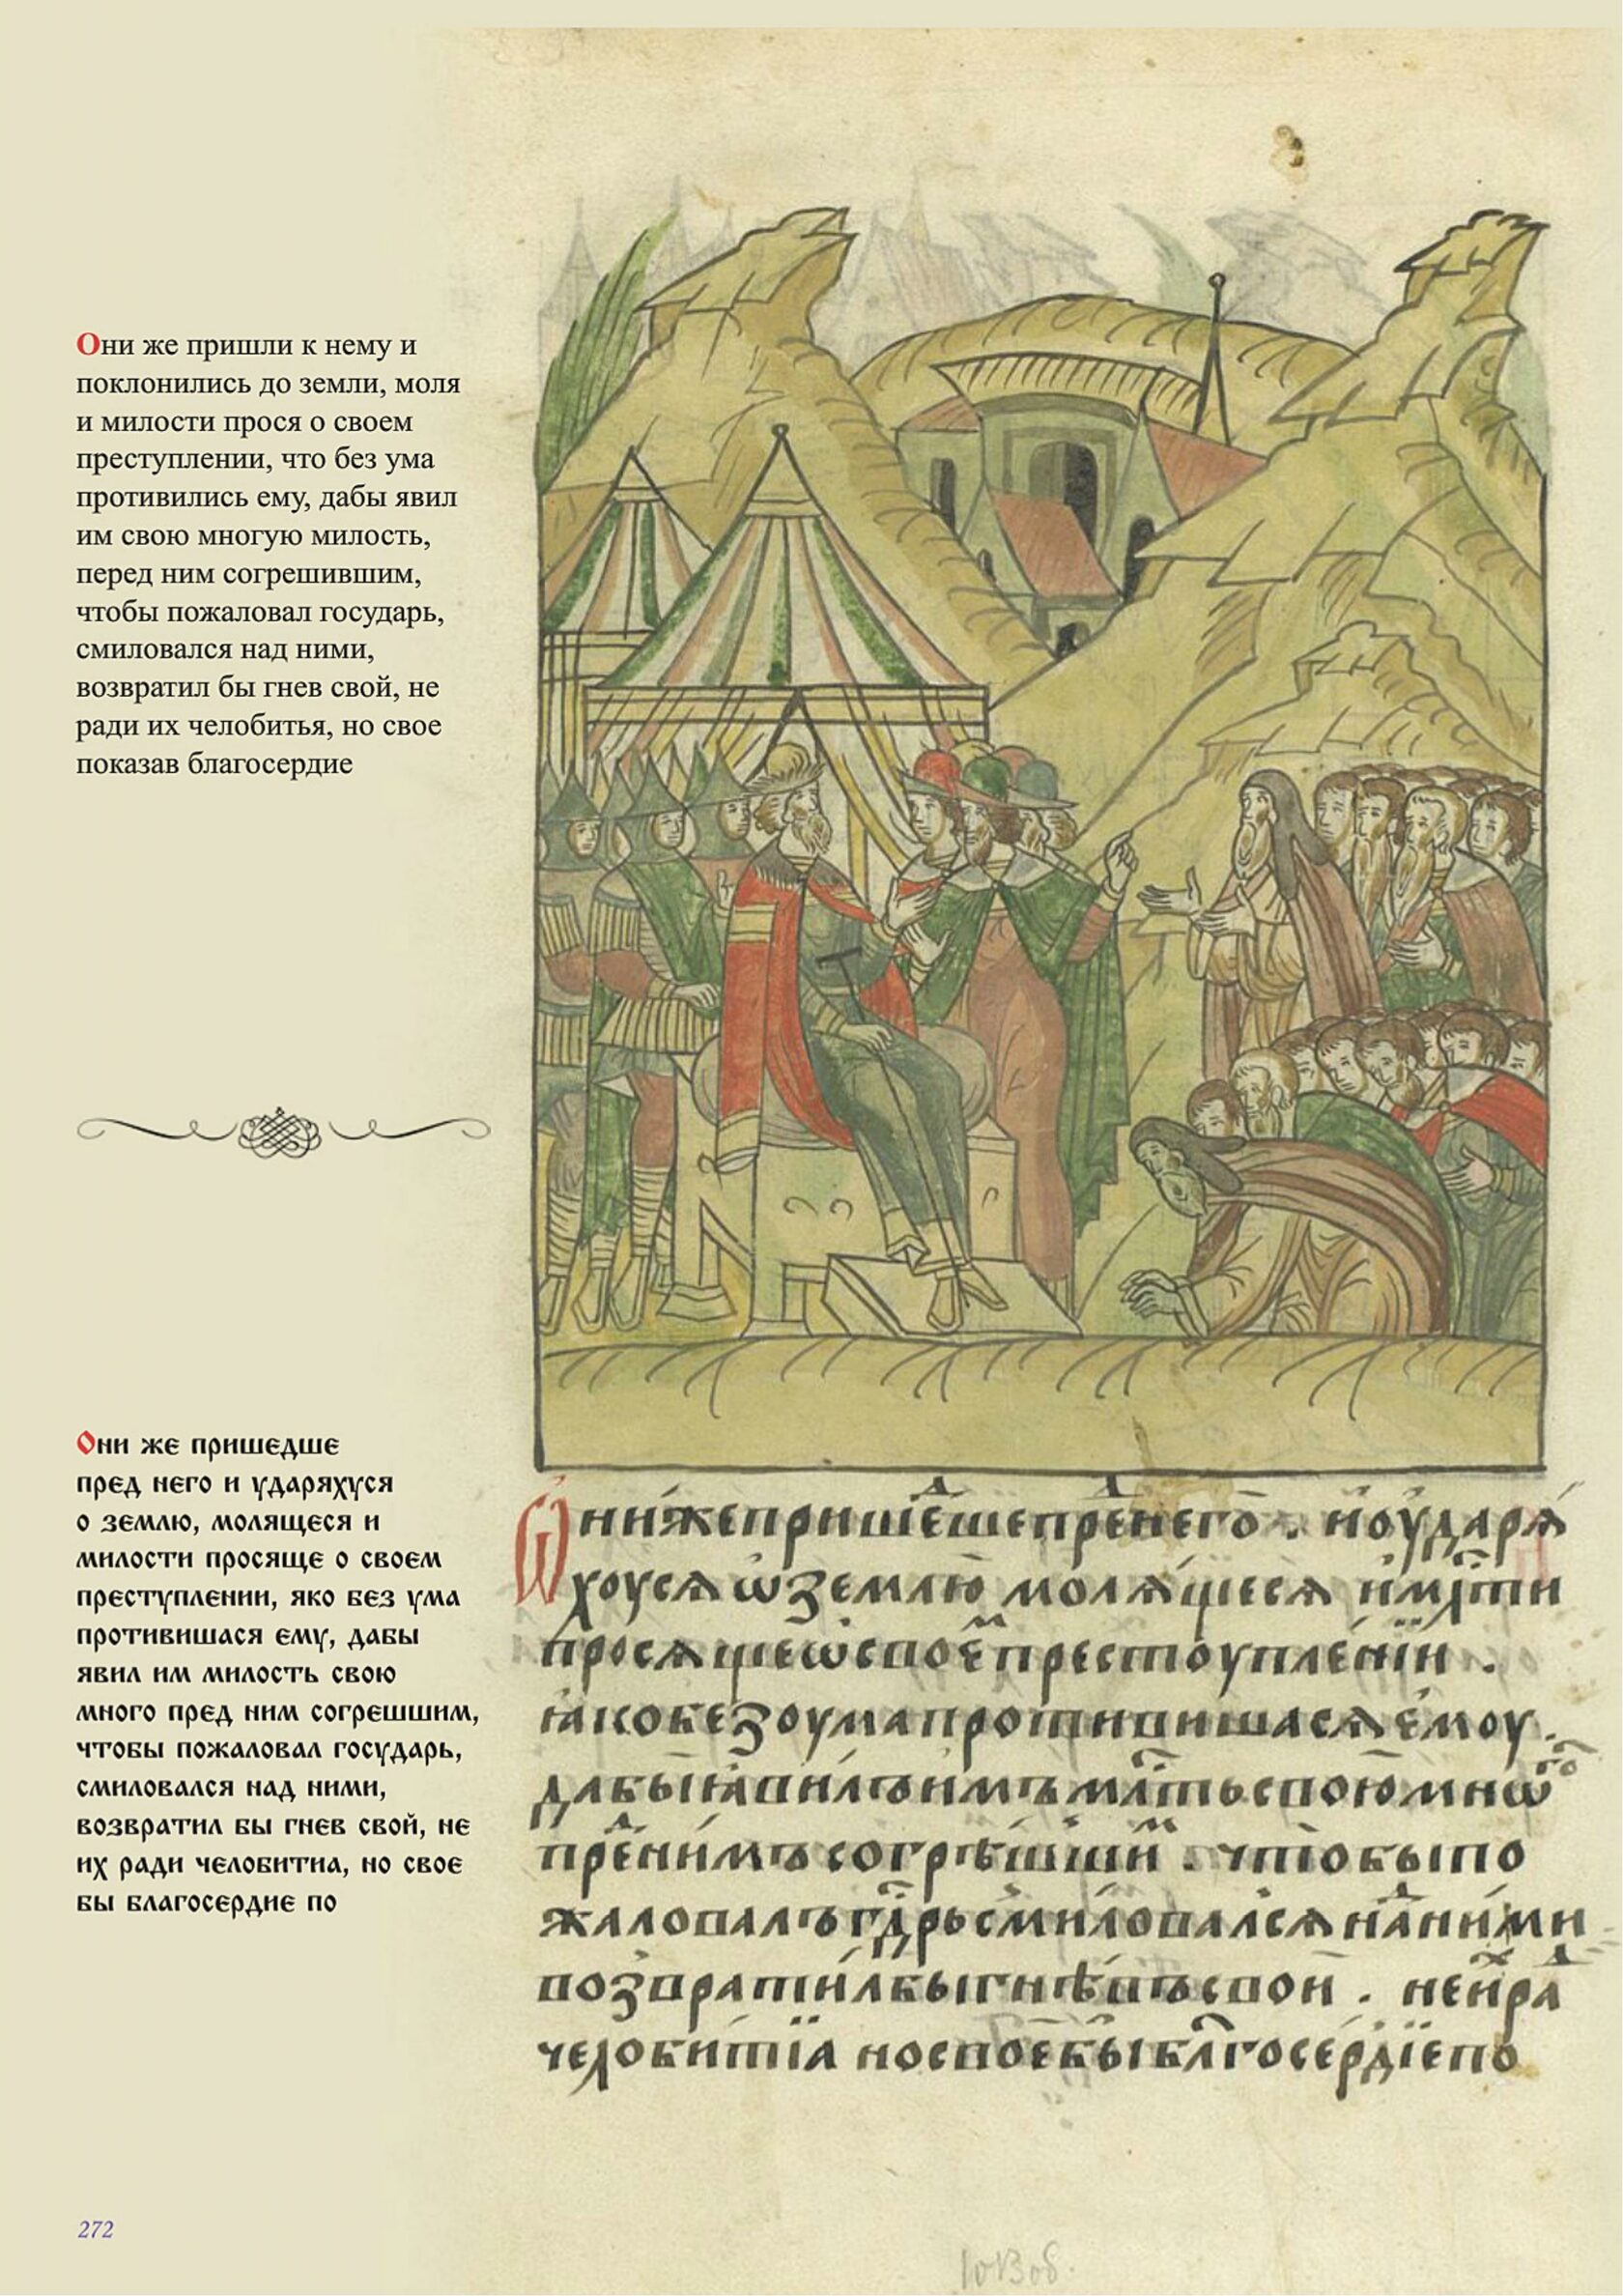 Они же пришли к нему и
поклонились до земли, моля
и милости прося о своем
преступлении, что без ума
противились ему, дабы явил
им свою многую милость,
перед ним согрешившим,
чтобы пожаловал государь,
смиловался над ними,
возвратил бы гнев свой, не
ради их челобитья, но свое
показав благосердие
Они же пришедше
пред него и ударяхуся
о землю, молящеся и
милости просяще о своем
преступлении, яко без ума
противишася ему, дабы
явил им милость свою
много пред ним согрешшим,
чтобы пожаловал государь,
смиловался над ними,
возвратил бы гнев свой, не
их ради челобитиа, но свое
бы благосердие по
272
Ѡнижепришеⷣшепреⷣнего . иоударѧ
хоусѧѡземлю молѧщесѧ имлⷭ҇ти
просѧщеѡсвоеⷨпрестоупленїи .
ꙗкобезоумапротивишасѧемоу .
дабыꙗвилъимъмлⷭ҇тьсвоюмнѡⷢ҇ⷪ
преⷣнимъсогрѣшшиⷨ . чтобыпо
жаловалъгдⷭ҇рьсмиловалсѧнаⷣними
возвратилбыгнѣвъсвои . неиⷯраⷣ
челобитїа носвоебыблгⷭ҇осердїепо